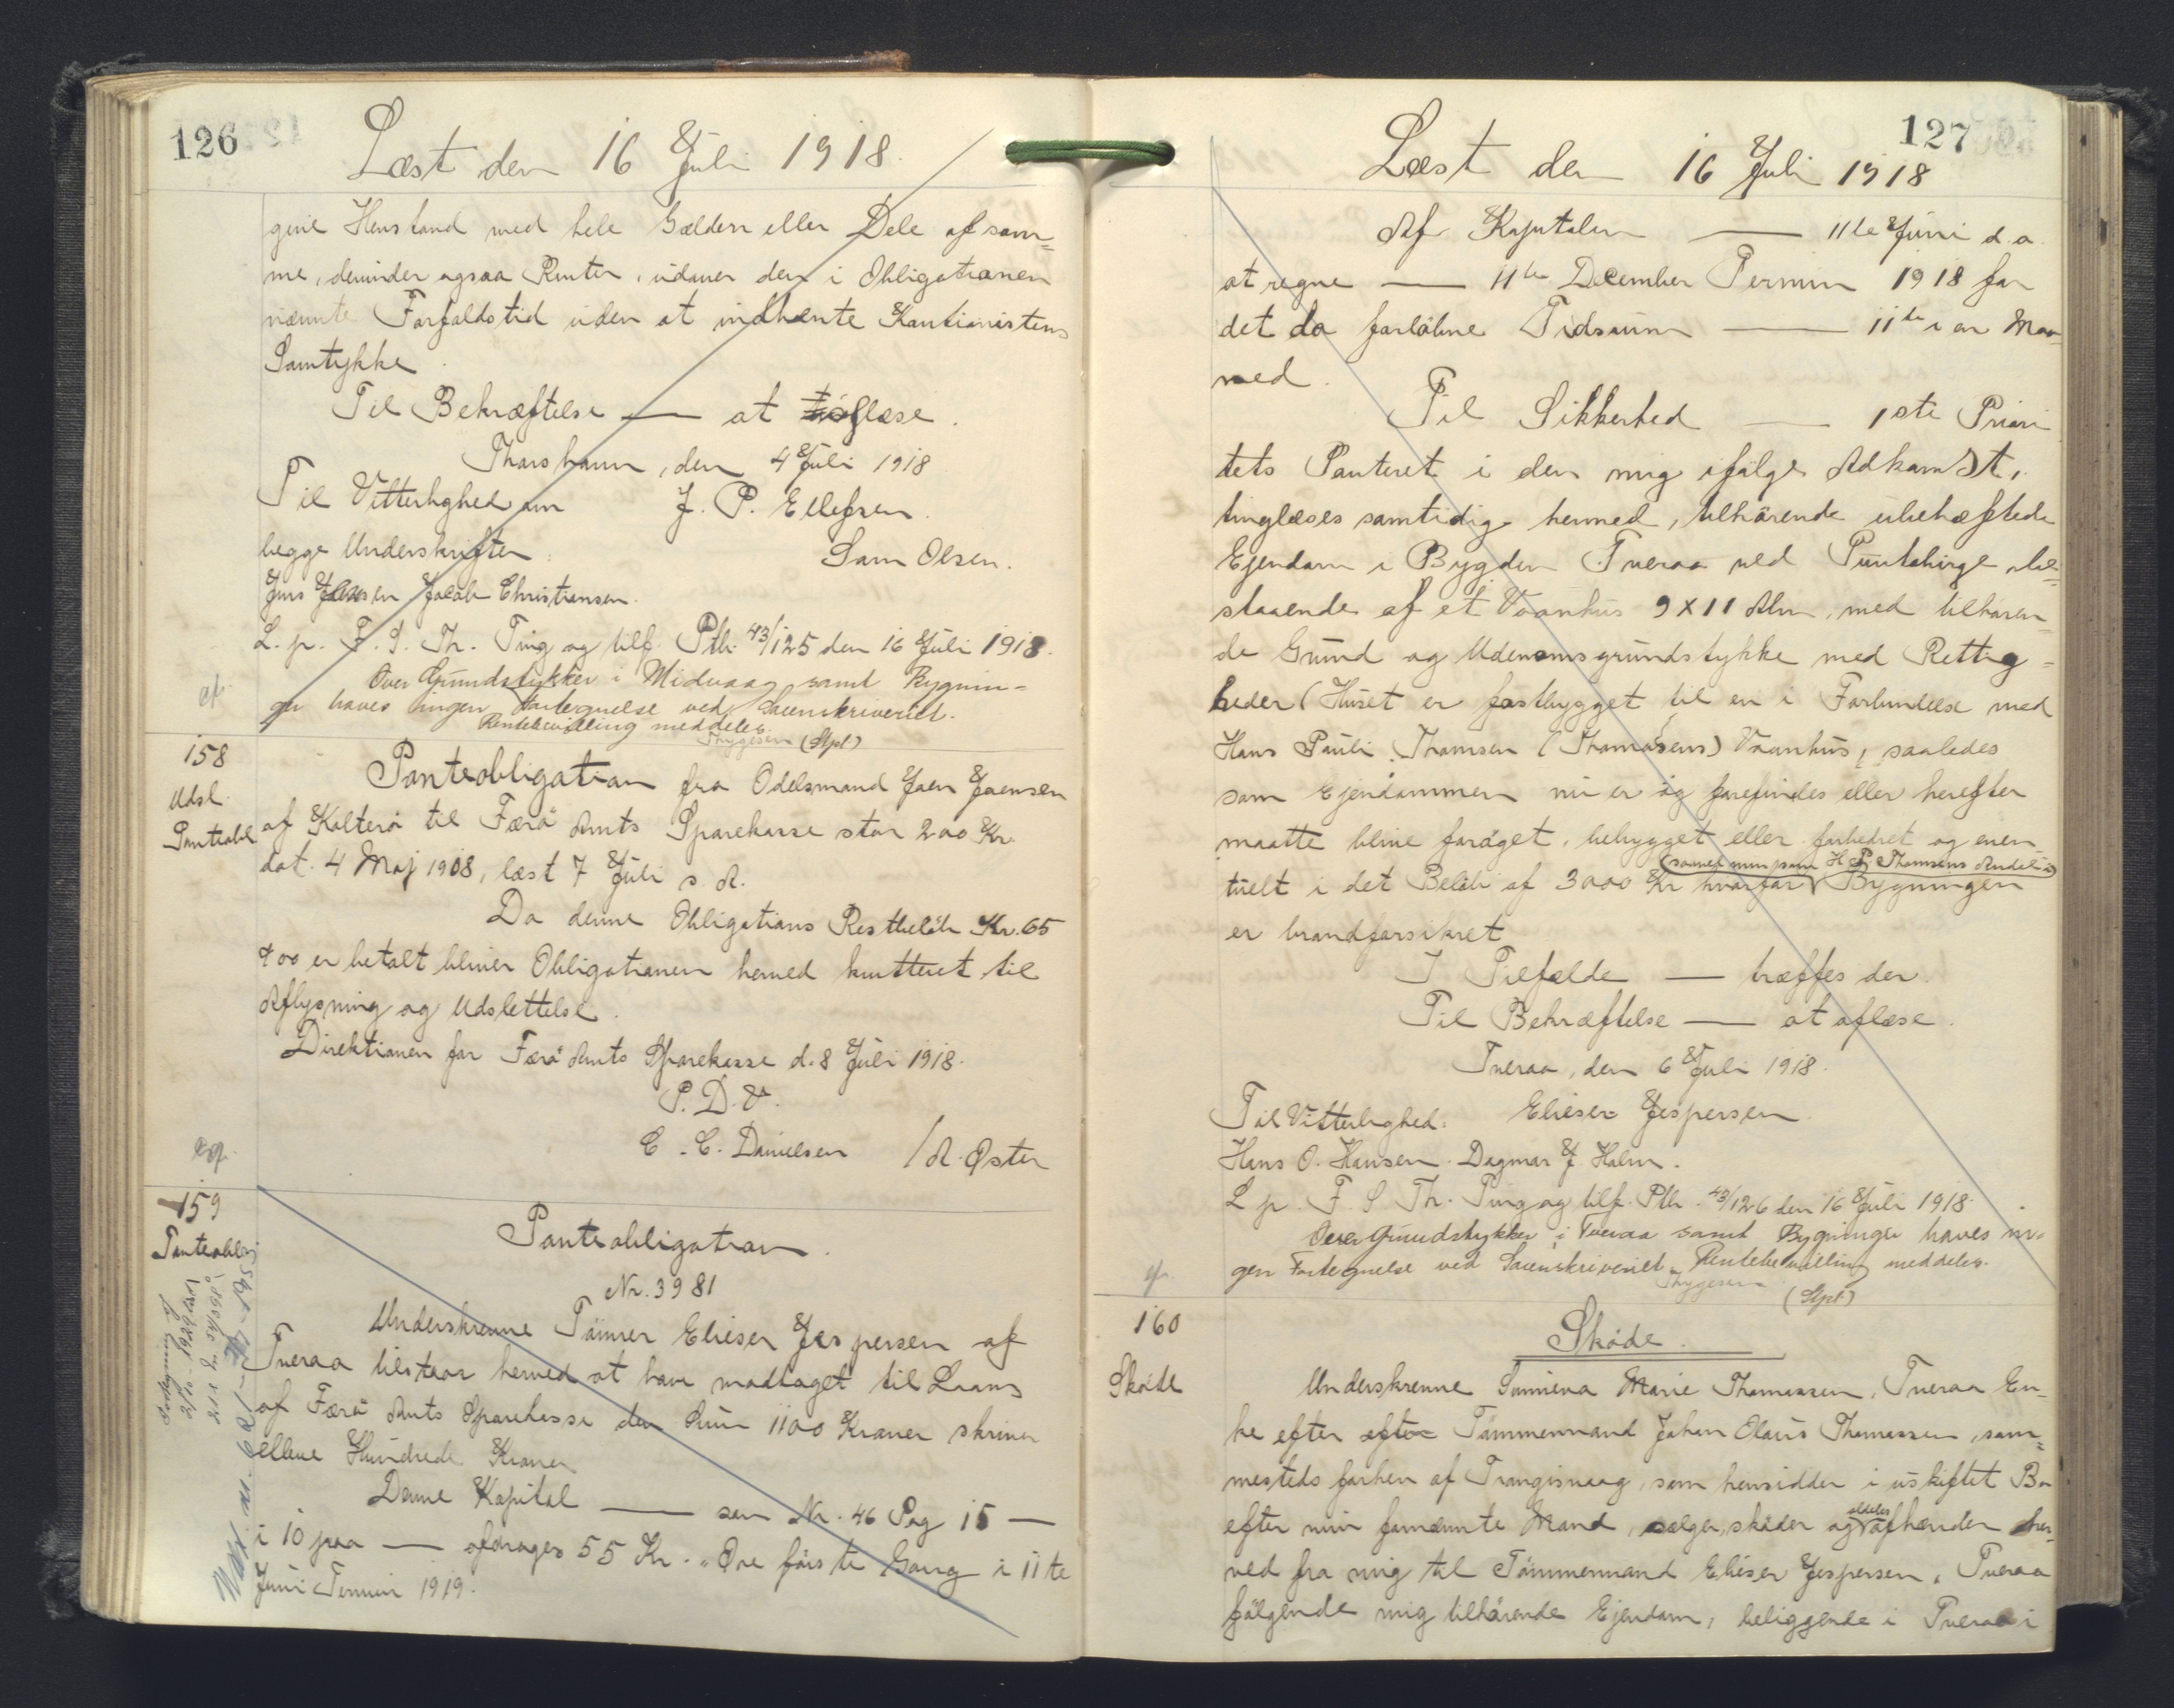 126
Læst den 16 Juli 1918.
give Henstand med hele Gælden eller Dele af sam=
me, derunder ogsaa Renter, udover den i Obligationen
nævnte Forfaldstid uden at indhente Kautionistens
Samtykke.
Til Bekræftelse — at aflæse.
Thorshavn, den 4 Juli 1918
Til Vitterlighed om J. P. Ellefsen.
begge Underskrifter: Sam Olsen.
Jens Jensen Jacob Christiansen.
L. p. F. S. Th. Ting og tilf. Ptb. 43/125 den 16 Juli 1918.
Over Grundstykker i Midvaag samt Bygnin=
ger haves ingen Fortegnelse ved Sorenskriveriet.
Rentebevilling meddeles.
Thygesen (Stpl)
cf.
158
Udsl.
Panteobl
Panteobligation fra Odelsmand Joen Joensen
af Kolterö til Færö Amts Sparekasse stor 200 Kr.
dat. 4 Maj 1908, læst 7 Juli s. A.
Da denne Obligations Restbelöb Kr. 65
00 er betalt bliver Obligationen herved kvitteret til
Aflysning og Udslettelse.
Direktionen for Færö Amts Sparekasse d. 8 Juli 1918.
P. D. V.
C. C. Danielsen / A. Øster
cf.
159
Panteobligation.
Nr. 3981
Underskrevne Tömrer Elieser Jespersen af
Tveraa tilstaar herved at have modtaget til Laans
af Færö Amts Sparekasse den Sum 1100 Kroner skriver
elleve Hundrede Kroner
Denne Kapital — som Nr. 46 Pag 15 —
i 10 paa — afdrages 55 Kr. „ Øre förste Gang i 11te
Juni Termin 1919.
127
Læst den 16 Juli 1918
Af Kapitalen — 11te Juni d. a.
at regne — 11te December Termin 1918 for
det da forlöbne Tidsrum — 11te i en Maa
ned.
Til Sikkerhed — 1ste Priori
tets Panteret i den mig ifölge Adkomst,
tinglæses samtidig hermed, tilhörende ubehæftede
Ejendom i Bygden Tveraa ved be=
staaende af et Vaanhus 9 X 11 Alen, med tilhören
de Grund og Udenomsgrundstykke med Rettig=
heder (Huset er fastbygget til en i Forbindelse med
Hans Pauli Thomsen (Thomasens) Vaanhus, saaledes
som Ejendommen nu er og forefindes eller herefter
maatte blive foröget, bebygget eller forbedret og even
(saavel min som H P Thomsens Andel i)
tuelt i det Belöb af 3000 Kr hvorfor Bygningen
er brandforsikret
I Tilfælde — træffes der.
Til Bekræftelse — at aflæse.
Tveraa, den 6 Juli 1918.
Til Vitterlighed: Elieser Jespersen.
Hans O. Hansen. Dagmar J. Holm.
L p. F. S Th. Ting og tilf. Ptb. 43/126 den 16 Juli 1918.
Over Grundstykker i Tveraa samt Bygninger haves in=
gen Fortegnelse ved Sorenskriveriet. Rentebevilling meddeles.
Thygesen (Stpl)
cf.
160
Sköde
Sköde.
Underskrevne Sunneva Marie Thomassen, Tveraa En=
ke efter efter Tömmermand Johan Olaus Thomassen, sam=
mesteds forhen af Trangisvaag, som hensidder i uskiftet Bo
efter min fornævnte Mand, sælger, sköder og aldeles afhænder her
ved fra mig til Tömmermand Elieser Jespersen, Tveraa
fölgende mig tilhörende Ejendom, beliggende i Tveraa i